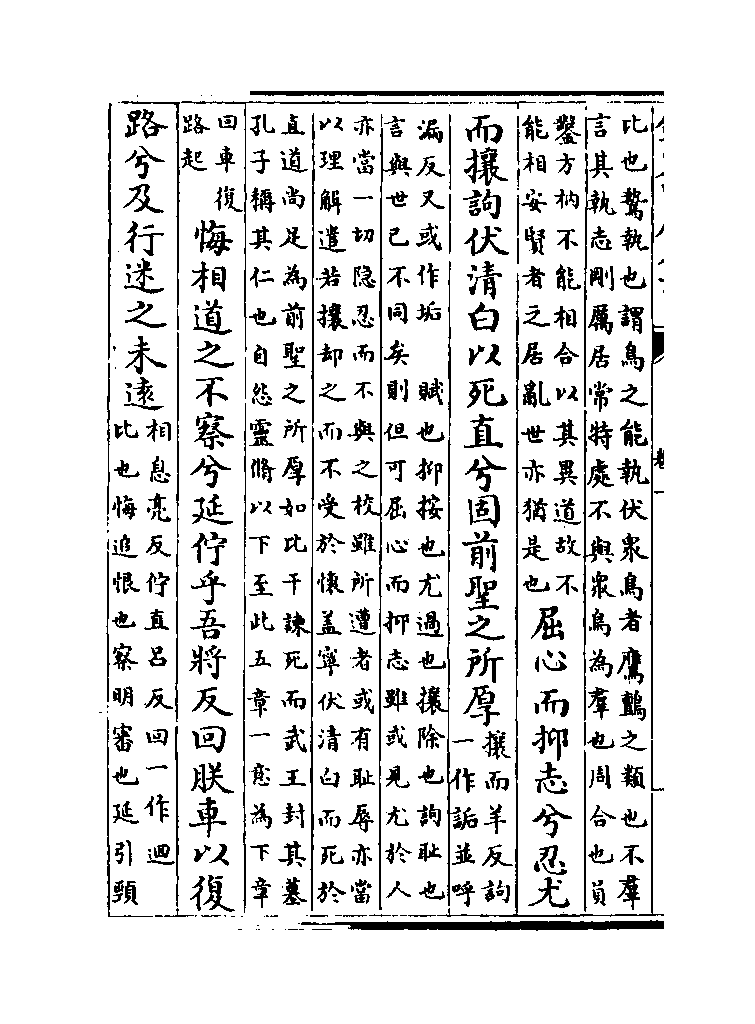 比也鷙執也謂鳥之能執伏衆鳥者鷹鸇之類也不羣
言其執志剛厲居常特處不與衆鳥為羣也周合也員
鑿方枘不能相合以其異道故不
能相安賢者之居亂世亦猶是也
屈心而抑志兮忍尤
而攘訽伏清白以死直兮固前聖之所厚
攘而羊反訽
一作詬並呼
漏反又或作垢　賦也抑按也尤過也攘除也訽耻也
言與世已不同矣則但可屈心而抑志雖或見尤於人
亦當一切隐忍而不與之校雖所遭者或有耻辱亦當
以理解遣若攘却之而不受於懷盖寧伏清白而死於
直道尚足為前聖之所厚如比干諫死而武王封其墓
孔子稱其仁也自怨靈脩以下至此五章一意為下章
回車復
路起
悔相道之不察兮延佇乎吾將反回朕車以復
路兮及行迷之未遠
相息亮反佇直呂反回一作迴
比也悔追恨也察明審也延引頸